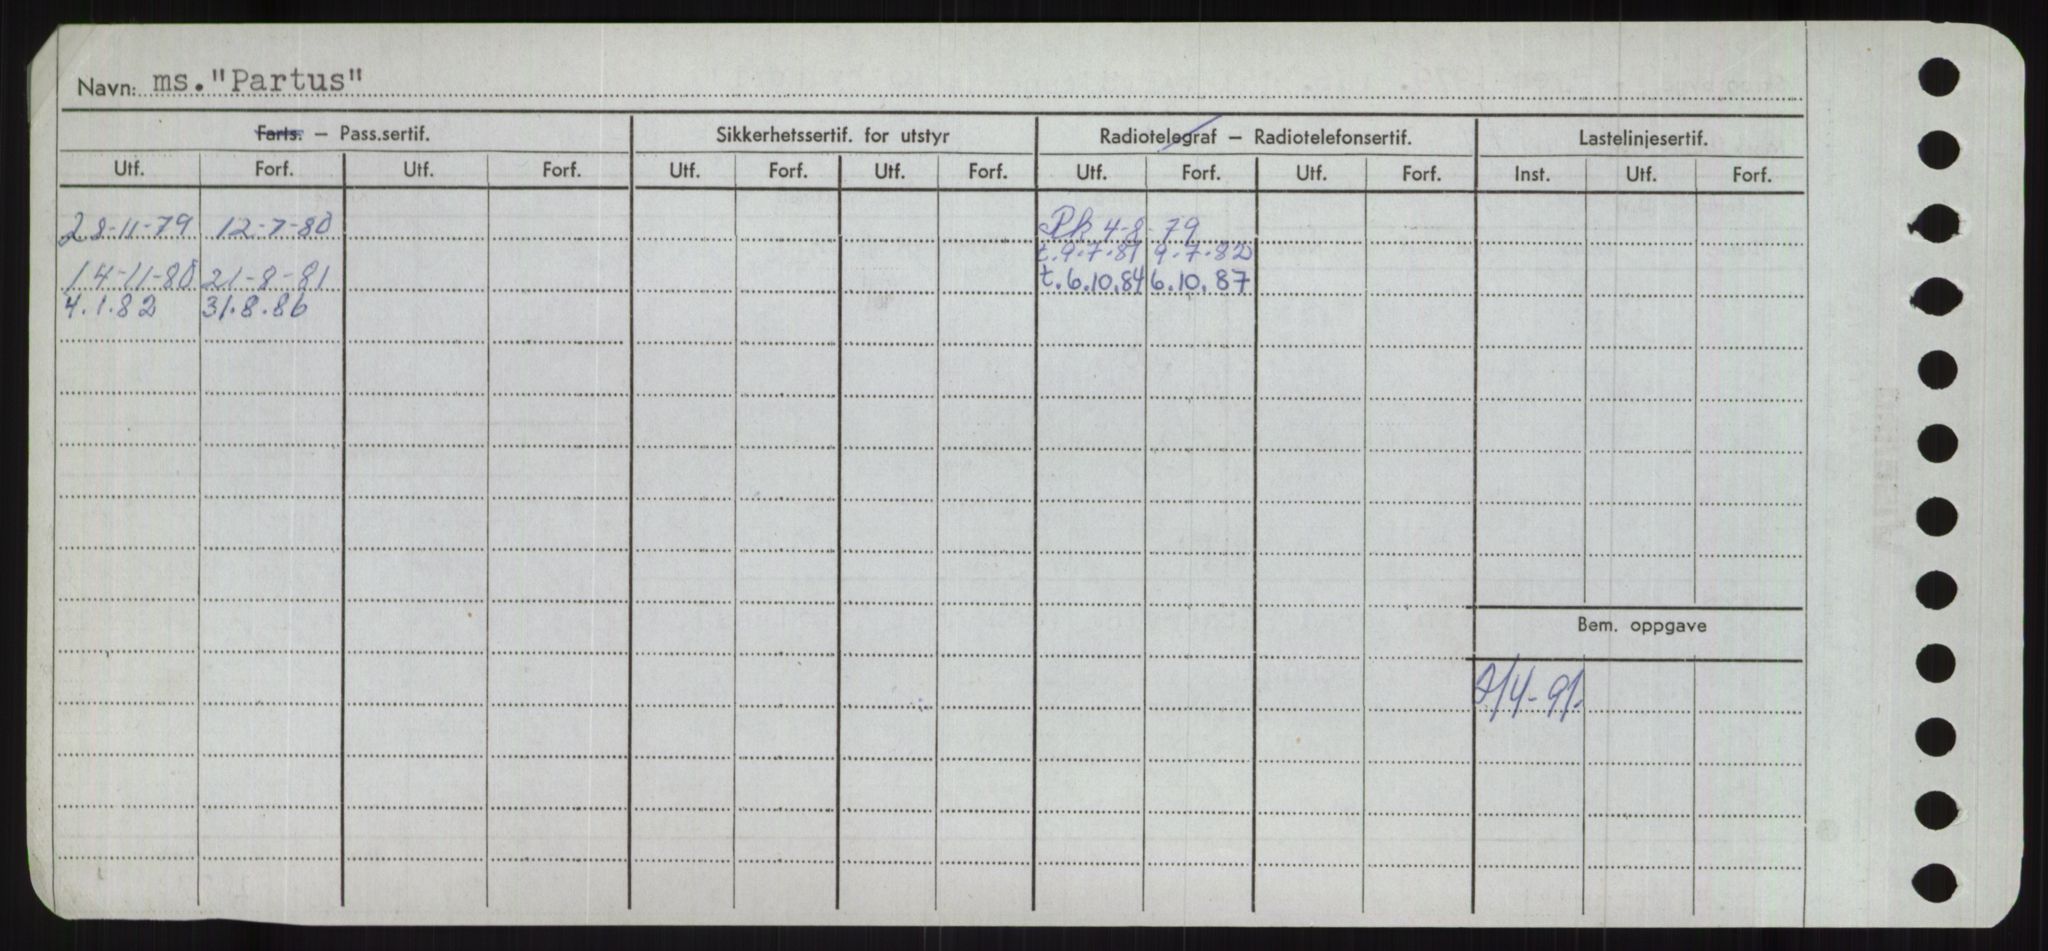 Navn: ms."Partus"
Farts. – Pass.sertif. Sikkerhetssertif. for utstyr Radiotelegraf – Radiotelefonsertif. Lastelinjesertif.
Utf. Forf. Utf. Forf. Utf. Forf. Utf. Forf. Utf. Forf. Utf. Forf. Inst. Utf. Forf.
28-11-79 12-7-80 Rk 4-8-79
t. 9-7-81 9-7-82
14-11-80 21-8-81 t. 6.10.84 6.10.87
4.1.82 31.8.86
Bem. oppgave
/4-91.